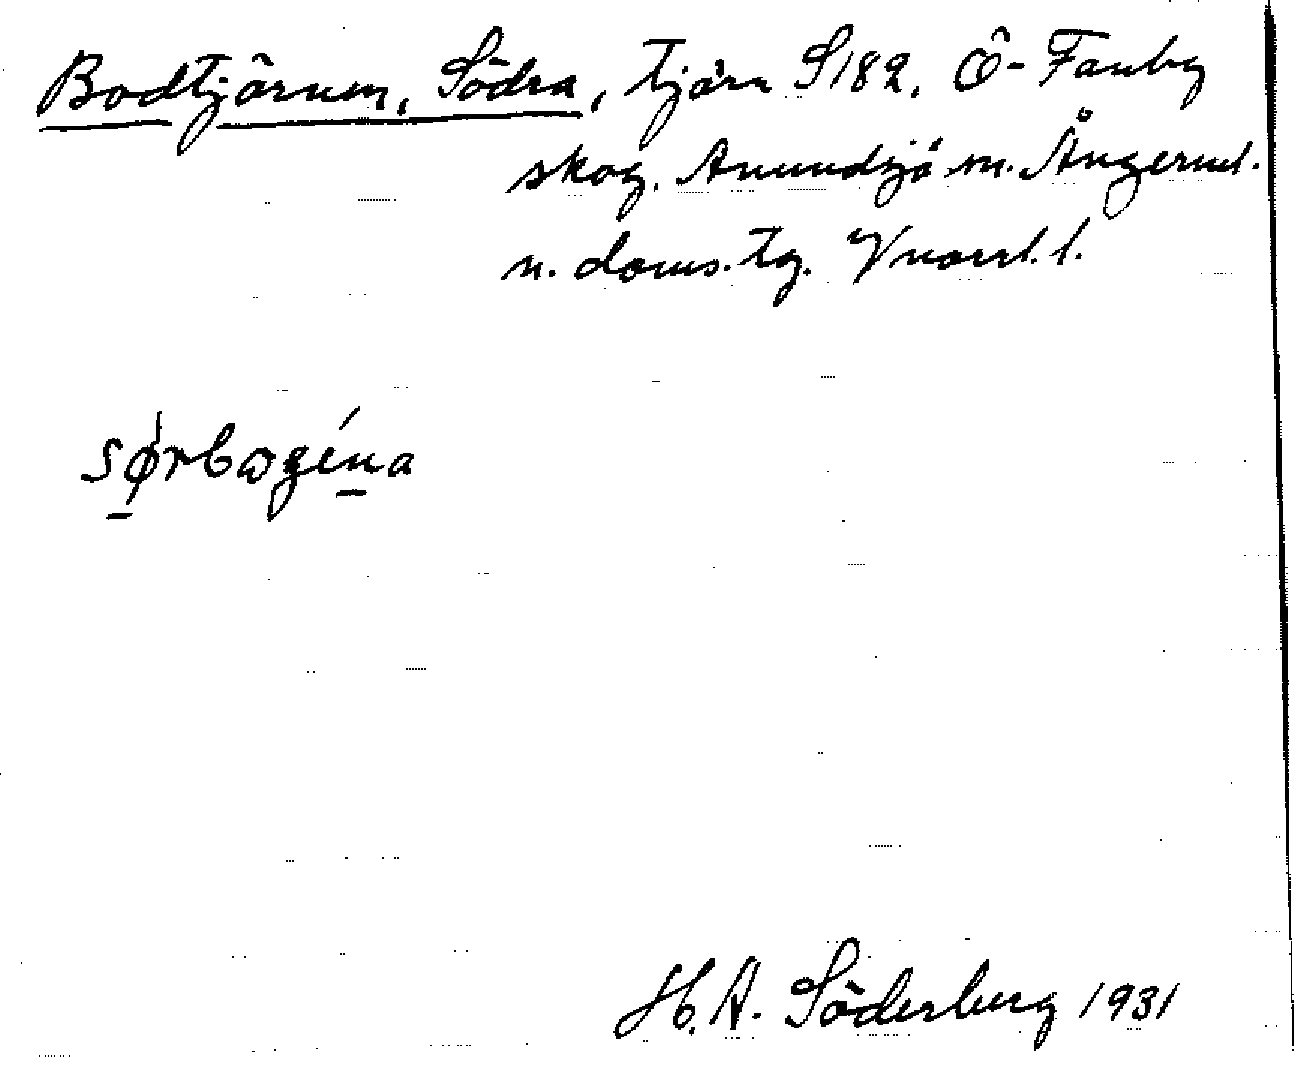 Bodtjärnen, Södra, tjärn S182. Ö-Fanby
skog. Anundsjö sn. Ångerml.
n. doms. tg. Vnorrl. l.
H. A. Söderberg 1931